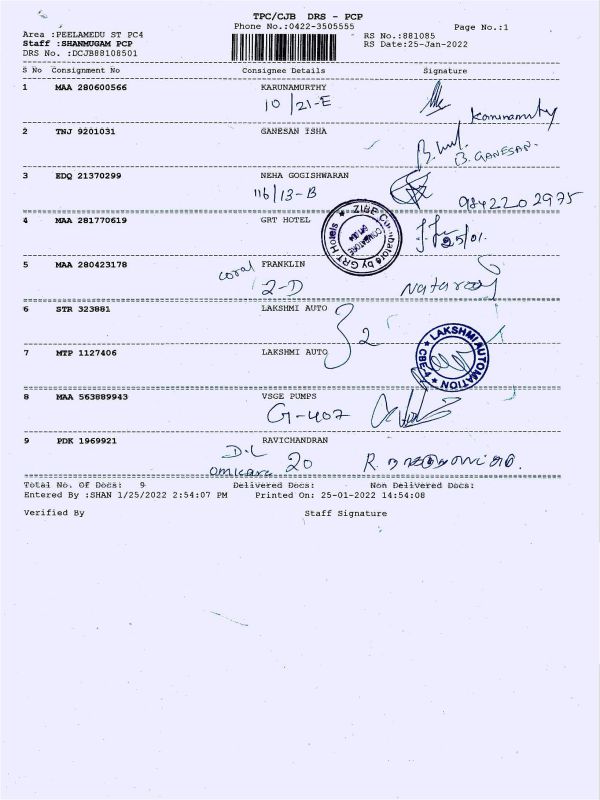 TPC/CJB DRS - PCP
Phone No.:0422-3505555
Page No.:1
Area :PEELAMEDU ST PC4
RS No.:881085
Staff :SHANMUGAM PCP
RS Date:25-Jan-2022
DRS No. :DCJB88108501
S No Consignment No Consignee Details Signature
1 MAA 280600566 KARUNAMURTHY
10/21-E
2 TNJ 9201031 GANESAN ISHA
B. GANESAN.
3 EDQ 21370299 NEHA GOGISHWARAN
116/13-B
9842202975
4 MAA 281770619 GRT HOTEL
ZIBE Coimbatore by GRT Hotels
COIMBATORE
25/01.
5 MAA 280423178 FRANKLIN
coral
2-D
Nataraj
6 STR 323881 LAKSHMI AUTO
2
7 MTP 1127406 LAKSHMI AUTO
LAKSHMI AUTOMATION
CBE-4
8 MAA 563889943 VSGE PUMPS
G-407
9 PDK 1969921 RAVICHANDRAN
D.L
omkara 20
Total No. Of Docs: 9 Delivered Docs: Non Delivered Docs:
Entered By :SHAN 1/25/2022 2:54:07 PM Printed On: 25-01-2022 14:54:08
Verified By Staff Signature